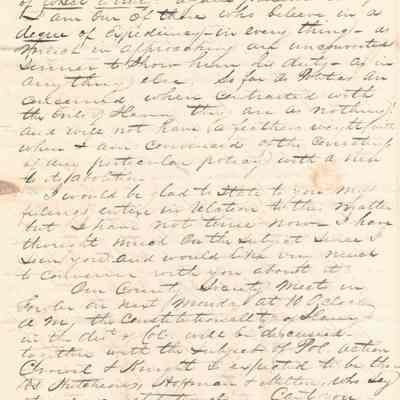 I am one of those who believe in a
degree of expediency in every thing - as
much in approaching an unconverted
sinner to show him his duty - as in
any thing else. So far as Politics are
concerned when contrasted with
the Evils of Slavery they are as nothing
and will not have a feathers weight
when I am convinced of the necessity
of any particular policy with a view
to its abolition.
I would be glad to State to you my
feelings entire in relation to the matter
but I have not time now. I have
thought much on the subject since I
Seen you and would like very much
to converse with you about it.
Our County Society meets in
on next Monday at 10 Oclock
A M, the Constitutionality of Slavery
in the dist of Col. will be discussed
together with the subject of Pol. action
& is expected to be there
As Hutchens, Hoffman & Melton, who say